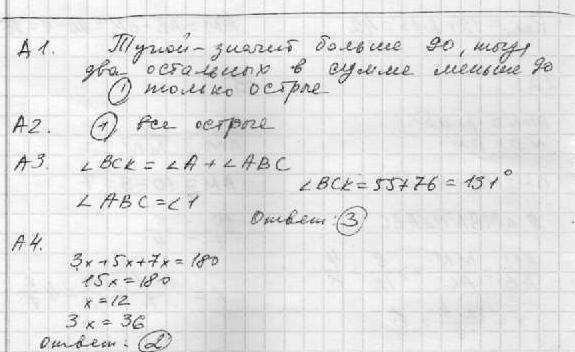 А1. Тупой – значит больше 90, тогда
два остальных в сумме меньше 90
① только острые
А2. ① все острые
А3. ∠BCK = ∠A + ∠ABC
∠BCK = 55+76 = 131°
∠ABC = ∠1
Ответ: ③
А4.
3x+5x+7x=180
15x=180
x=12
3x=36
Ответ: ②